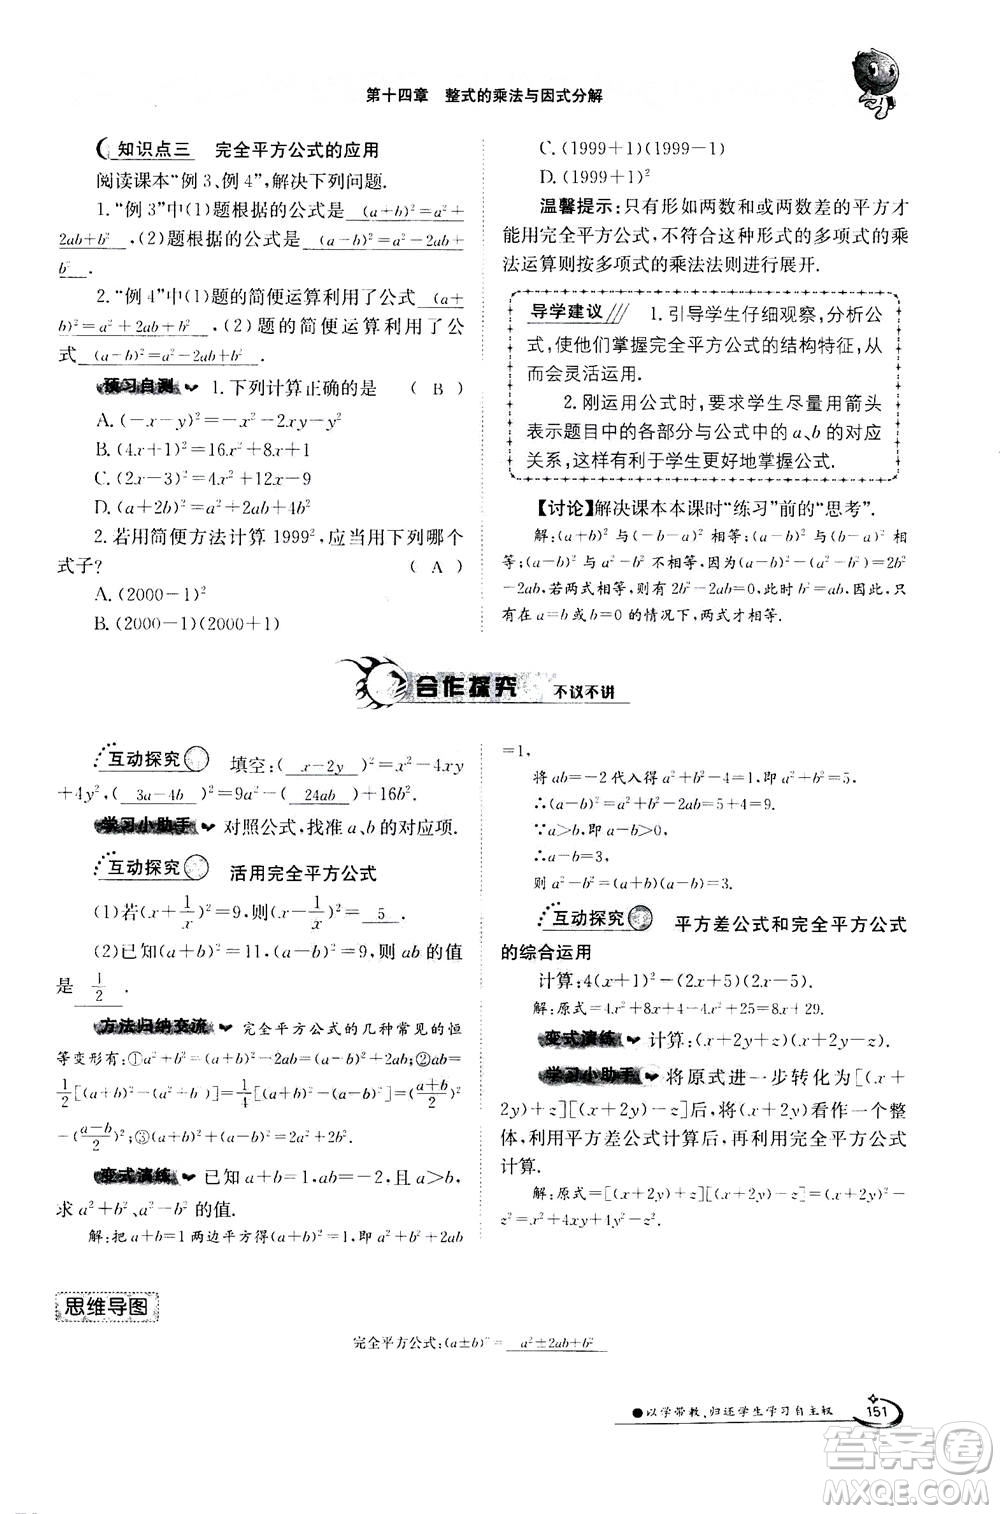 第十四章 整式的乘法与因式分解
知识点三 完全平方公式的应用
阅读课本“例 3、例 4”,解决下列问题.
1.“例 3”中(1)题根据的公式是 (a+b)²=a²+
2ab+b² ,(2)题根据的公式是 (a-b)²=a²-2ab+
b² .
2.“例 4”中(1)题的简便运算利用了公式 (a+
b)²=a²+2ab+b² ,(2)题的简便运算利用了公
式 (a-b)²=a²-2ab+b² .
预习自测 1.下列计算正确的是 ( B )
A.(-x-y)²=x²-2xy-y²
B.(4x+1)²=16x²+8x+1
C.(2x-3)²=4x²+12x-9
D.(a+2b)²=a²+2ab+4b²
2.若用简便方法计算 1999²,应当用下列哪个
式子? ( A )
A.(2000-1)²
B.(2000-1)(2000+1)
C.(1999+1)(1999-1)
D.(1999+1)²
温馨提示:只有形如两数和或两数差的平方才
能用完全平方公式,不符合这种形式的多项式的乘
法运算则按多项式的乘法法则进行展开.
导学建议 1.引导学生仔细观察,分析公
式,使他们掌握完全平方公式的结构特征,从
而会灵活运用.
2.刚运用公式时,要求学生尽量用箭头
表示题目中的各部分与公式中的 a、b 的对应
关系,这样有利于学生更好地掌握公式.
【讨论】解决课本本课时“练习”前的“思考”.
解:(a+b)² 与(-b-a)² 相等;(a-b)² 与(b-a)² 相
等;(a-b)² 与 a²-b² 不相等,因为(a-b)²-(a²-b²)=2b²
-2ab,若两式相等,则有 2b²-2ab=0,此时 b²=ab,故只
有在 a=b 或 b=0 的情况下,两式才相等.
合作探究 不议不讲
互动探究 填空:( x-2y )²=x²-4xy
+4y²,( 3a-4b )²=9a²-( 24ab )+16b².
学习小助手 对照公式,找准 a、b 的对应项.
互动探究 活用完全平方公式
(1)若(x+1/x)²=9,则(x-1/x)²= 5 .
(2)已知(a+b)²=11,(a-b)²=9,则 ab 的值
是 1/2 .
方法归纳交流 完全平方公式的几种常见的恒
等变形有:①a²+b²=(a+b)²-2ab=(a-b)²+2ab;②ab=
1/2[(a+b)²-(a²+b²)]=1/4[(a+b)²-(a-b)²]=((a+b)/2)²
-((a-b)/2)²;③(a+b)²+(a-b)²=2a²+2b².
变式演练 已知 a+b=1,ab=-2,且 a>b,
求 a²+b²、a²-b² 的值.
解:把 a+b=1 两边平方得(a+b)²=1,即 a²+2ab+b²
=1,
将 ab=-2 代入得 a²+b²=1-4=1,即 a²+b²=5,
∴(a-b)²=a²+b²-2ab=5+4=9.
∵a>b,即 a-b>0,
∴a-b=3,
则 a²-b²=(a+b)(a-b)=3.
互动探究 平方差公式和完全平方公式
的综合运用
计算:4(x+1)²-(2x+5)(2x-5).
解:原式=4x²+8x+4-4x²+25=8x+29.
变式演练 计算:(x+2y+z)(x+2y-z).
学习小助手 将原式进一步转化为[(x+
2y)+z][(x+2y)-z],将(x+2y)看作一个整
体,利用平方差公式计算后,再利用完全平方公式
计算.
解:原式=[(x+2y)+z][(x+2y)-z]=(x+2y)²-
z²=x²+4xy+4y²-z².
思维导图
完全平方公式:(a±b)²= a²±2ab+b²
●以学带教、归还学生学习自主权 151
答案圈